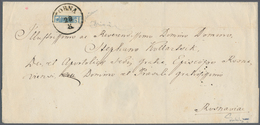 TORNA
28
Illustrissimo ac Reverendissimo Domino Domino
Stephano Kollarcsik
Dei et Apostolicae Sedis gratia Episcopo Rosna
Domino et Praesuli gratiosissimo
Rosnaviae